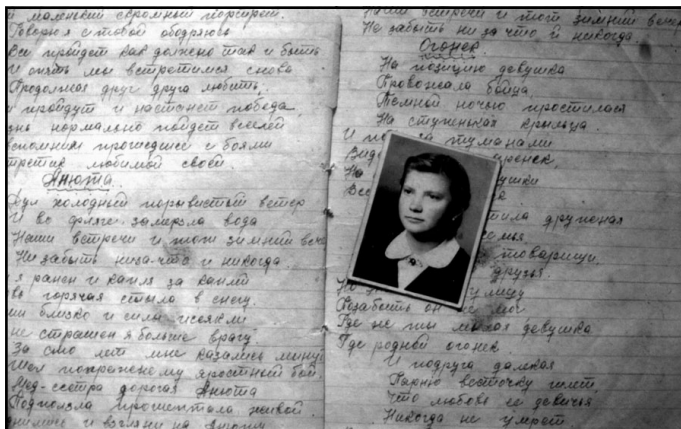 й маленький скромный портрет.
Говорил с тобой ободряюсь
Все пройдет как должно так и быть
И опять мы встретимся снова
Продолжая друг друга любить.
и пройдут и настанет победа,
знь нормально пойдет веселей
вспомним прошедшее с боями
третик любимой своей.
Анюта.
Дул холодный порывистый ветер
И во фляге замерзла вода
Наши встречи и тот зимний вече
Не забыть низачто и никогда.
я ранен и капля за каплей
вь горячая стыла в снегу.
ши близко и силы иссякли
не страшен я больше врагу.
За сто лет мне казались минут
Шел по прежнему яростный бой.
Мед-сестра дорогая Анюта
Подползла прошептала живой
днимись и взгляни на Анюту
Наши встречи и тот зимний вечер
Не забыть ни за что и никогда
Огонек
На позицию девушка
Провожала бойца.
Темной ночью простилася
На ступеньках крыльца.
И по за туманами
Вид онек
На ушки
Все
тила дружная
емья
товарищи.
друзья.
Но улицу
Позабыть он не мог
Где же ты милая девушка
Где родной огонек
И подруга далкая
Парню весточку шлет
Что любовь ее девичья
Никогда не умрет